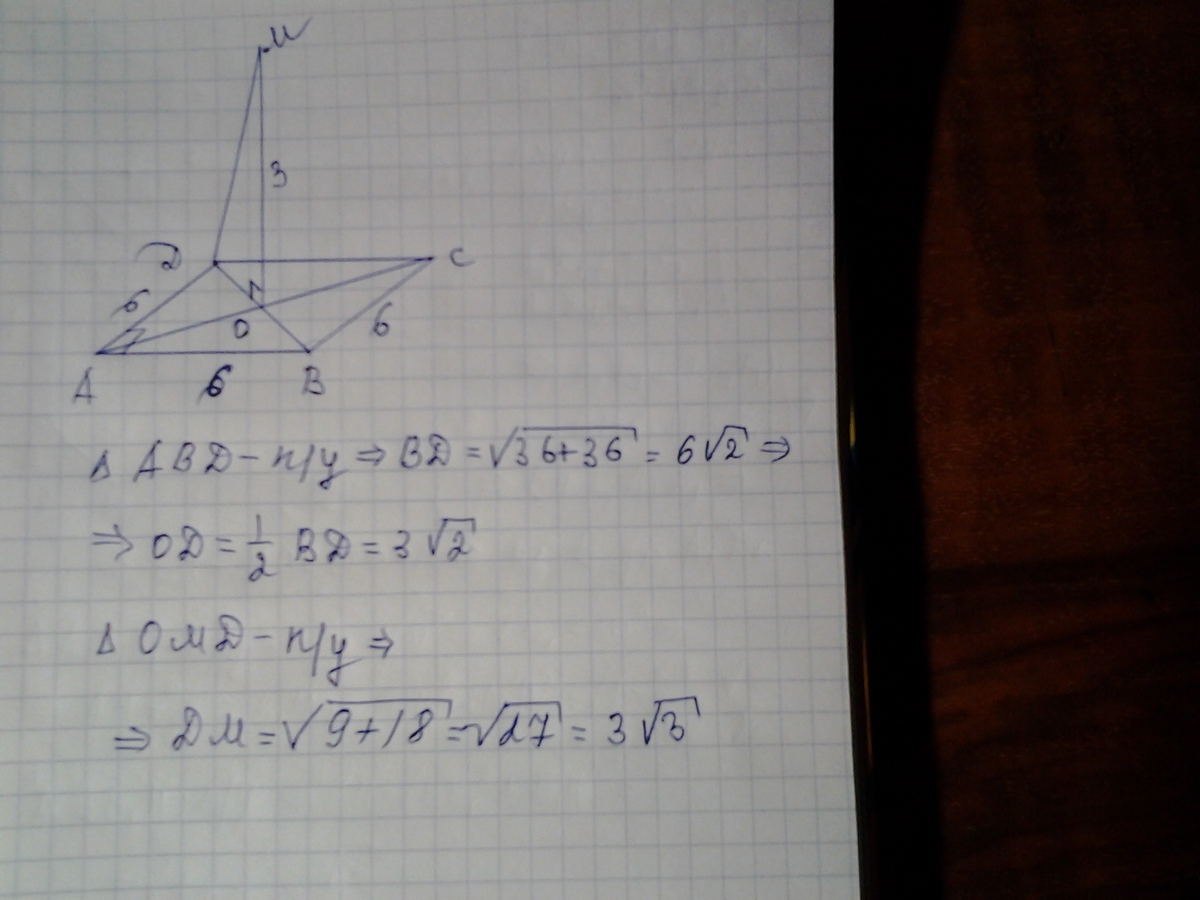 M
3
D
C
6
O
6
A
6
B
Δ ABD - п/у ⇒ BD = √36+36 = 6√2 ⇒
⇒ OD = 1/2 BD = 3√2
Δ OMD - п/у ⇒
⇒ DM = √9+18 = √27 = 3√3